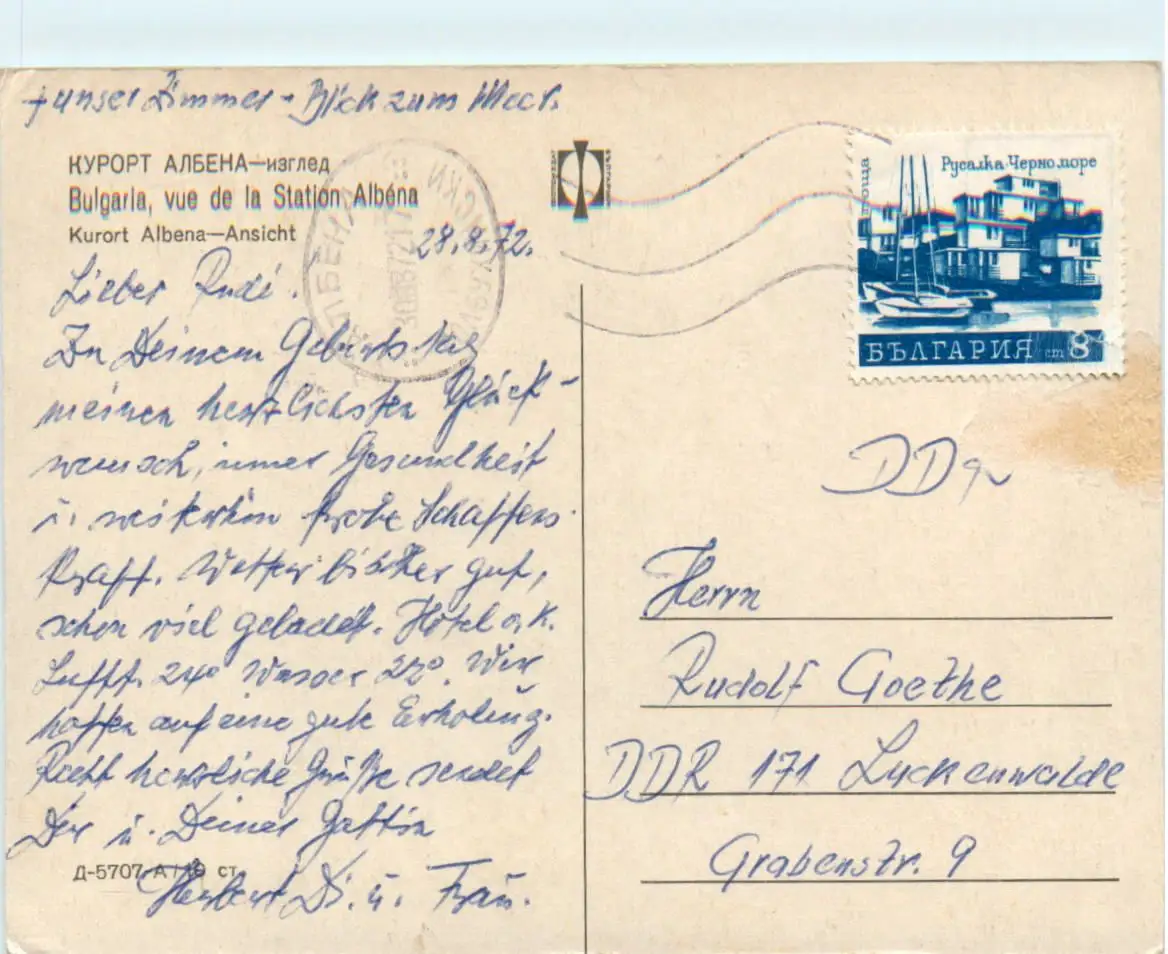 + unser Zimmer - Blick zum Meer.
КУРОРТ АЛБЕНА—изглед
Bulgaria, vue de la Station Albéna
Kurort Albena—Ansicht
28.8.72.
Lieber Rudi.
Zu Deinem Geburtstag
meinen herzlichsten Glück-
wunsch, immer Gesundheit
u. weiterhin frohe Schaffens-
kraft. Wetter bisher gut,
schon viel gebadet. Hotel o.k.
Luft 24° Wasser 22°. Wir
hoffen auf eine gute Erholung.
Recht herzliche Grüße sendet
Dir u. Deiner Gattin
Herbert Di. u. Frau.
Д-5707-А
ст
Русалка-Черно море
поща
БЪЛГАРИЯ ст 8
АЛБЕНА
DDR
Herrn
Rudolf Goethe
DDR 171 Luckenwalde
Grabenstr. 9